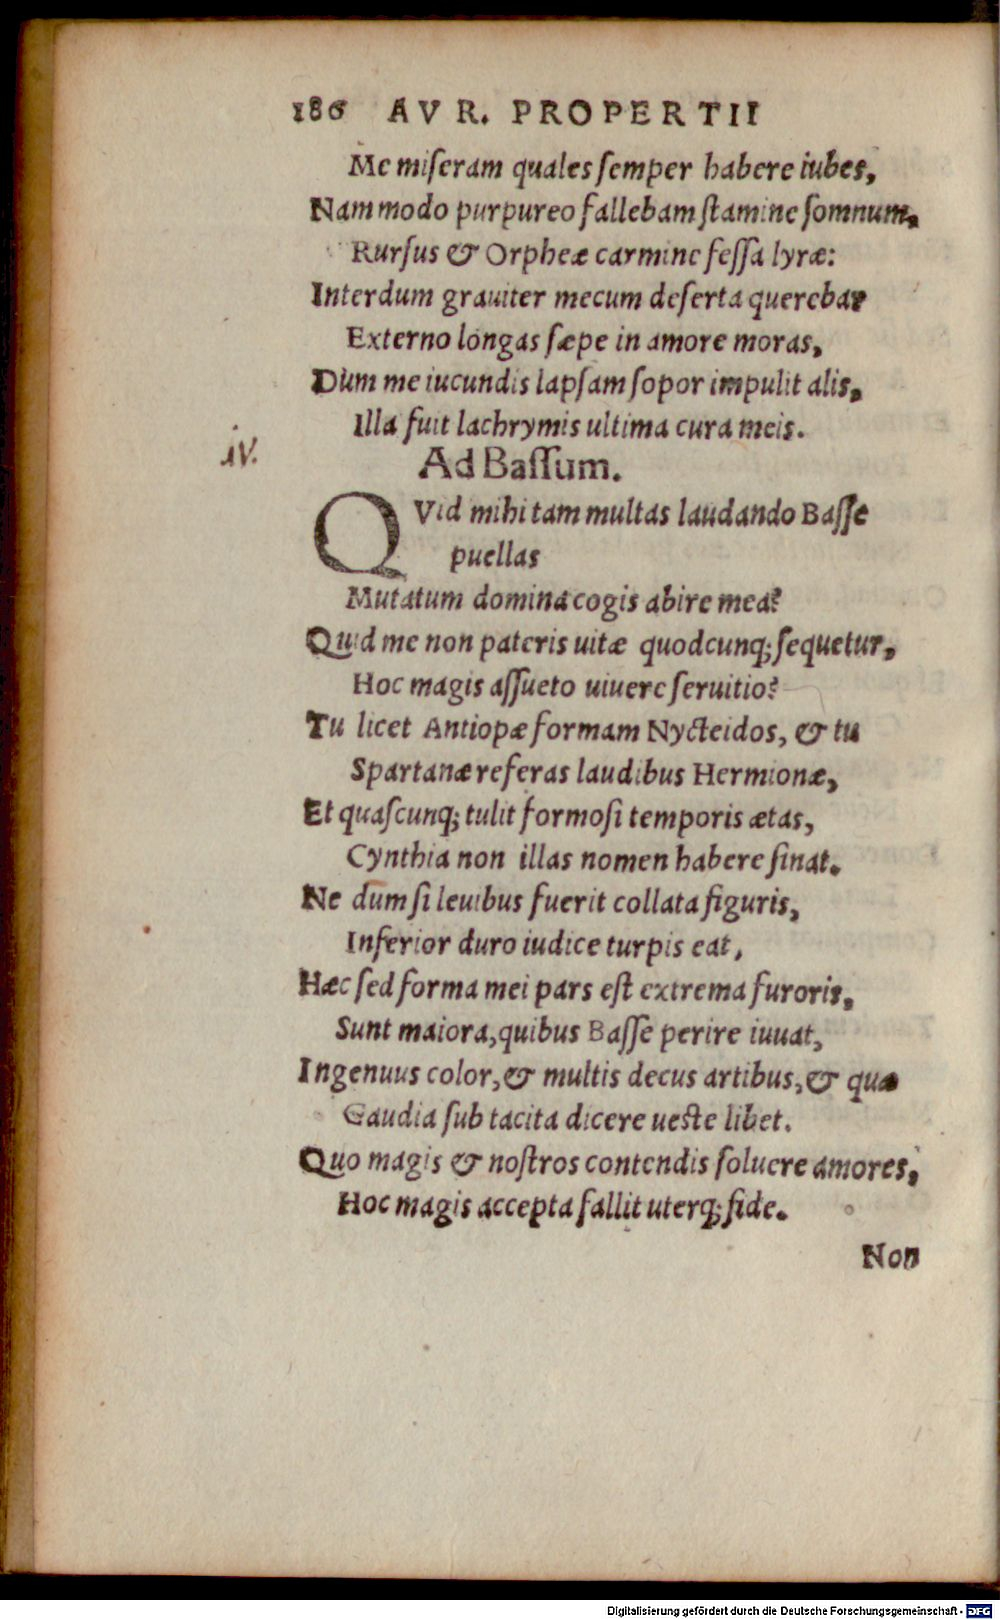 186 AVR. PROPERTII
Me miſeram quales ſemper habere iubes,
Nam modo purpureo fallebam ſtamine ſomnum,
Rurſus & Orpheæ carmine feſſa lyræ:
Interdum grauiter mecum deſerta querebar
Externo longas ſæpe in amore moras,
Dum me iucundis lapſam ſopor impulit alis,
Illa fuit lachrymis ultima cura meis.
iV.
Ad Baſſum.
QVid mihi tam multas laudando Baſſe
puellas
Mutatum domina cogis abire mea?
Quid me non pateris uitæ quodcunq; ſequetur,
Hoc magis aſſueto uiuere ſeruitio?
Tu licet Antiopæ formam Nycteidos, & tu
Spartanæ referas laudibus Hermionæ,
Et quaſcunq; tulit formoſi temporis ætas,
Cynthia non illas nomen habere ſinat.
Ne dum ſi leuibus fuerit collata figuris,
Inferior duro iudice turpis eat,
Hæc ſed forma mei pars eſt extrema furoris,
Sunt maiora, quibus Baſſe perire iuuat,
Ingenuus color, & multis decus artibus, & quæ
Gaudia ſub tacita dicere ueſte libet.
Quo magis & noſtros contendis ſoluere amores,
Hoc magis accepta fallit uterq; fide.
Non
Digitalisierung gefördert durch die Deutsche Forschungsgemeinschaft - DFG